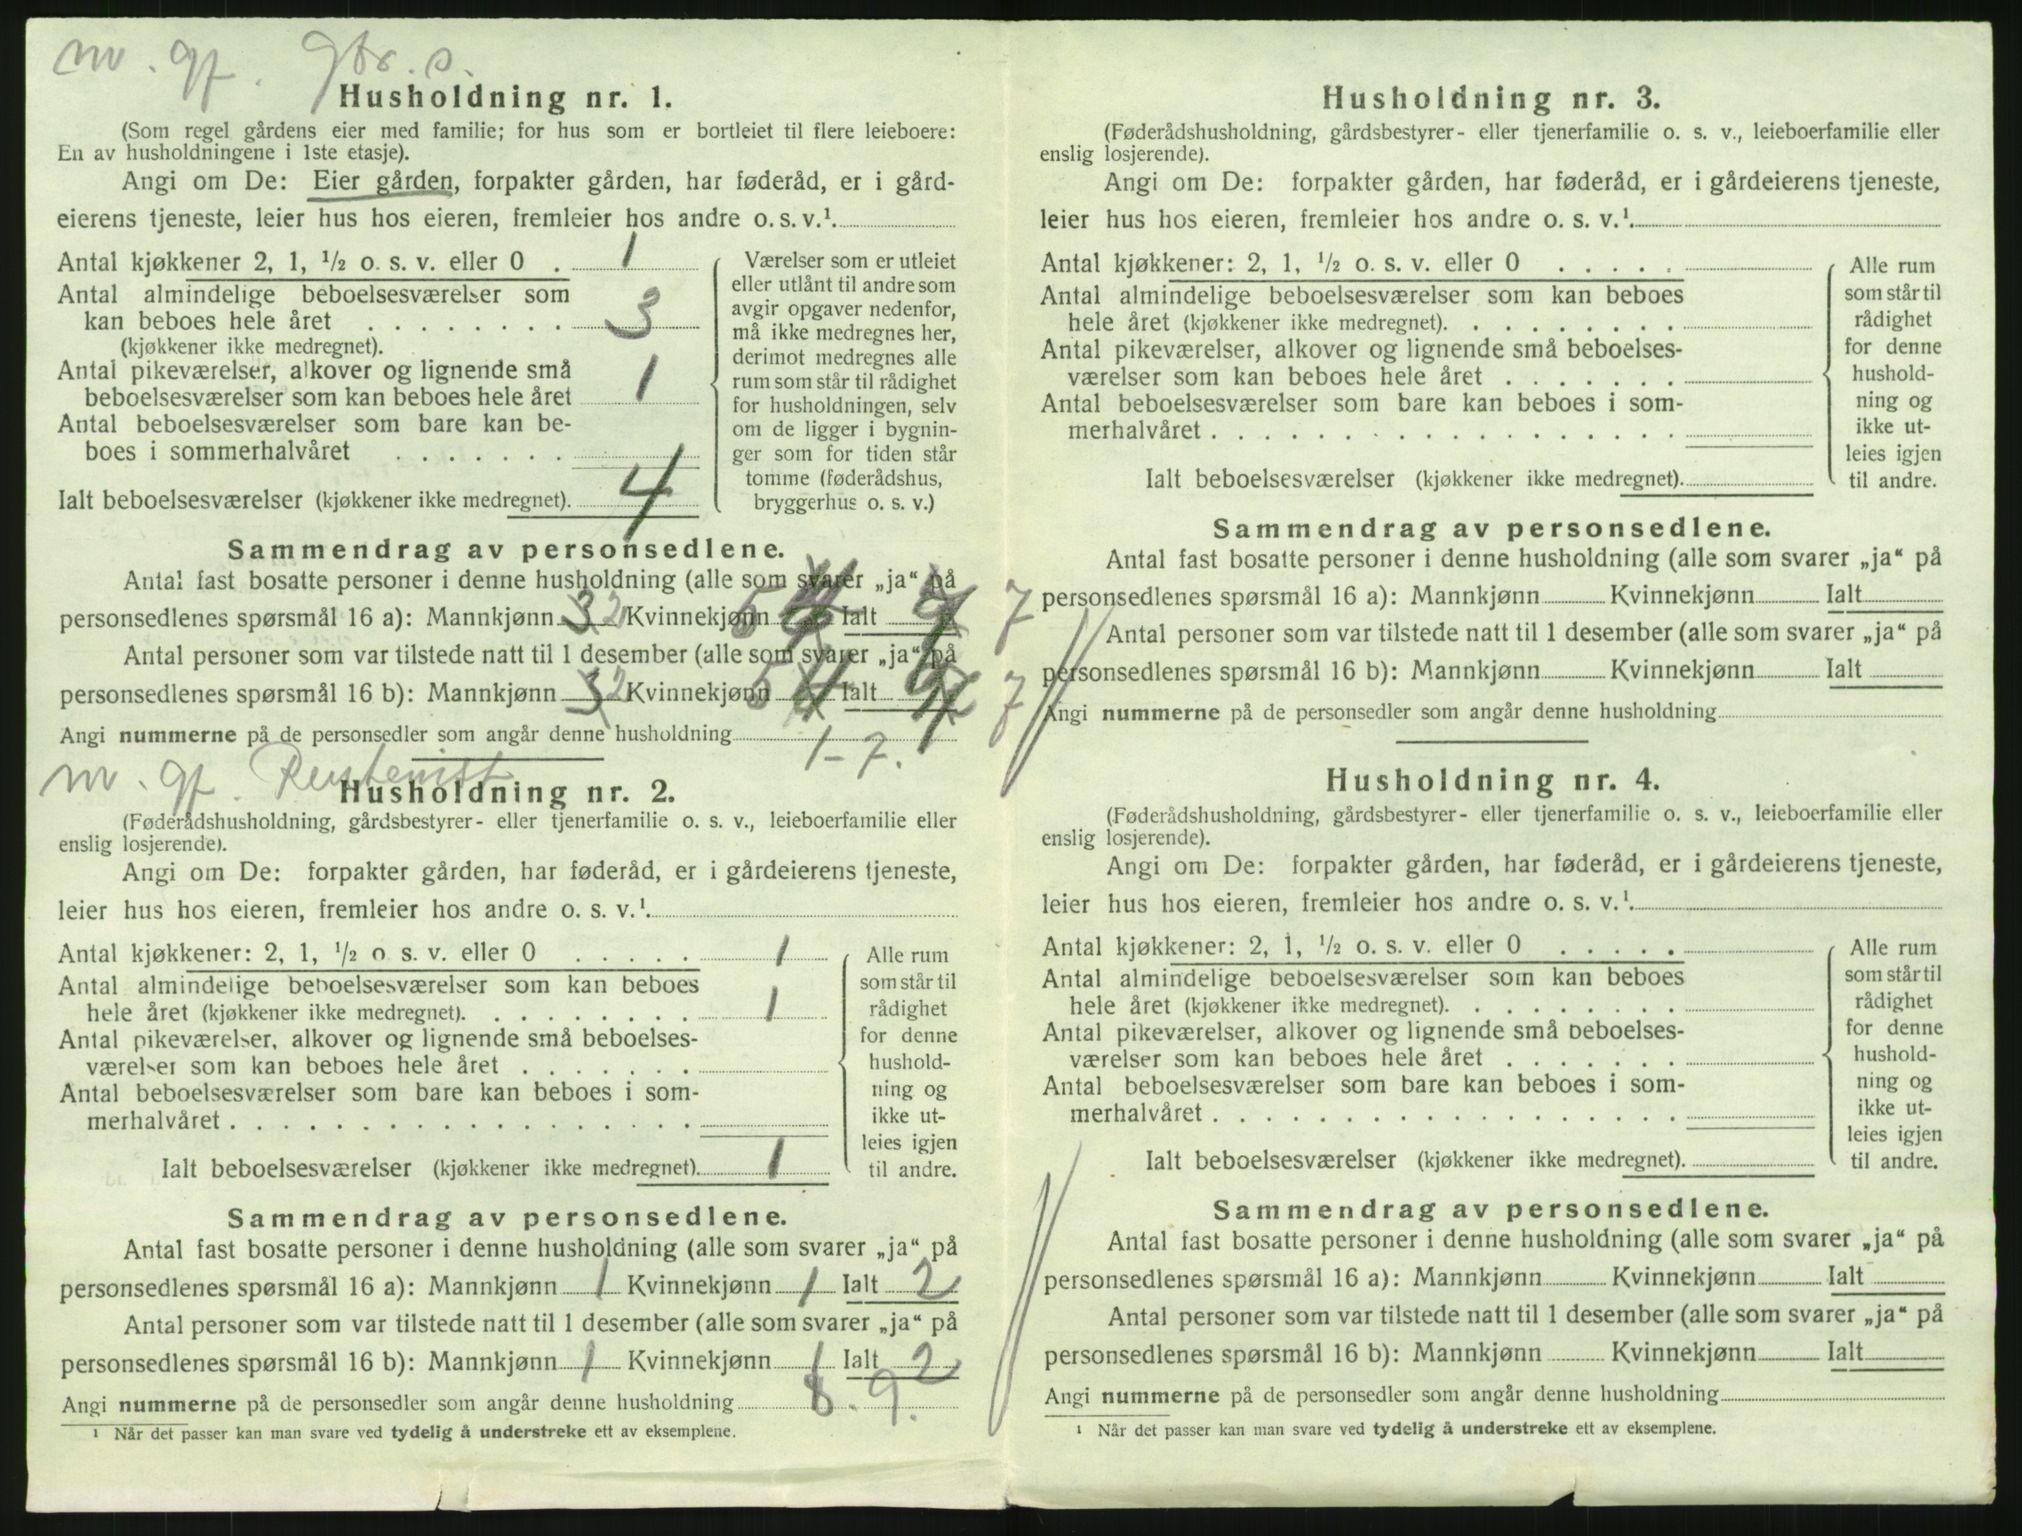 m. gf. gbr. s.
Husholdning nr. 1.
(Som regel gårdens eier med familie; for hus som er bortleiet til flere leieboere:
En av husholdningene i 1ste etasje).
Angi om De: Eier gården, forpakter gården, har føderåd, er i gård-
eierens tjeneste, leier hus hos eieren, fremleier hos andre o. s. v.¹
Antal kjøkkener 2, 1, ½ o. s. v. eller 0 . 1
Antal almindelige beboelsesværelser som
kan beboes hele året . . . . . . . . 3
(kjøkkener ikke medregnet).
Antal pikeværelser, alkover og lignende små
beboelsesværelser som kan beboes hele året 1
Antal beboelsesværelser som bare kan be-
boes i sommerhalvåret . . . . . . .
Ialt beboelsesværelser (kjøkkener ikke medregnet). 4
Værelser som er utleiet
eller utlånt til andre som
avgir opgaver nedenfor,
må ikke medregnes her,
derimot medregnes alle
rum som står til rådighet
for husholdningen, selv
om de ligger i bygnin-
ger som for tiden står
tomme (føderådshus,
bryggerhus o. s. v.)
Sammendrag av personsedlene.
Antal fast bosatte personer i denne husholdning (alle som svarer „ja“ på
personsedlenes spørsmål 16 a): Mannkjønn 3 2 Kvinnekjønn 5 Ialt 7
Antal personer som var tilstede natt til 1 desember (alle som svarer „ja“ på
personsedlenes spørsmål 16 b): Mannkjønn 3 2 Kvinnekjønn 5 Ialt 7
Angi nummerne på de personsedler som angår denne husholdning 1-7.
m. gf.
Husholdning nr. 2.
(Føderådshusholdning, gårdsbestyrer- eller tjenerfamilie o. s. v., leieboerfamilie eller
enslig losjerende).
Angi om De: forpakter gården, har føderåd, er i gårdeierens tjeneste,
leier hus hos eieren, fremleier hos andre o. s. v.¹
Antal kjøkkener: 2, 1, ½ o. s. v. eller 0 . . . . . 1
Antal almindelige beboelsesværelser som kan beboes
hele året (kjøkkener ikke medregnet). . . . . . . . . 1
Antal pikeværelser, alkover og lignende små beboelses-
værelser som kan beboes hele året . . . . . . .
Antal beboelsesværelser som bare kan beboes i som-
merhalvåret . . . . . . . . . . . . . . . . . .
Ialt beboelsesværelser (kjøkkener ikke medregnet). 1
Alle rum
som står til
rådighet
for denne
hushold-
ning og
ikke ut-
leies igjen
til andre.
Sammendrag av personsedlene.
Antal fast bosatte personer i denne husholdning (alle som svarer „ja“ på
personsedlenes spørsmål 16 a): Mannkjønn 1 Kvinnekjønn 1 Ialt 2
Antal personer som var tilstede natt til 1 desember (alle som svarer „ja“ på
personsedlenes spørsmål 16 b): Mannkjønn 1 Kvinnekjønn 1 Ialt 2
Angi nummerne på de personsedler som angår denne husholdning 8. 9.
¹ Når det passer kan man svare ved tydelig å understreke ett av eksemplene.
Husholdning nr. 3.
(Føderådshusholdning, gårdsbestyrer- eller tjenerfamilie o. s. v., leieboerfamilie eller
enslig losjerende).
Angi om De: forpakter gården, har føderåd, er i gårdeierens tjeneste,
leier hus hos eieren, fremleier hos andre o. s. v.¹
Antal kjøkkener: 2, 1, ½ o. s. v. eller 0 . . . . .
Antal almindelige beboelsesværelser som kan beboes
hele året (kjøkkener ikke medregnet). . . . . . . . .
Antal pikeværelser, alkover og lignende små beboelses-
værelser som kan beboes hele året . . . . . . .
Antal beboelsesværelser som bare kan beboes i som-
merhalvåret . . . . . . . . . . . . . . . . . .
Ialt beboelsesværelser (kjøkkener ikke medregnet).
Alle rum
som står til
rådighet
for denne
hushold-
ning og
ikke ut-
leies igjen
til andre.
Sammendrag av personsedlene.
Antal fast bosatte personer i denne husholdning (alle som svarer „ja“ på
personsedlenes spørsmål 16 a): Mannkjønn Kvinnekjønn Ialt
Antal personer som var tilstede natt til 1 desember (alle som svarer „ja“ på
personsedlenes spørsmål 16 b): Mannkjønn Kvinnekjønn Ialt
Angi nummerne på de personsedler som angår denne husholdning
Husholdning nr. 4.
(Føderådshusholdning, gårdsbestyrer- eller tjenerfamilie o. s. v., leieboerfamilie eller
enslig losjerende).
Angi om De: forpakter gården, har føderåd, er i gårdeierens tjeneste,
leier hus hos eieren, fremleier hos andre o. s. v.¹
Antal kjøkkener: 2, 1, ½ o. s. v. eller 0 . . . . .
Antal almindelige beboelsesværelser som kan beboes
hele året (kjøkkener ikke medregnet). . . . . . . . .
Antal pikeværelser, alkover og lignende små beboelses-
værelser som kan beboes hele året . . . . . . .
Antal beboelsesværelser som bare kan beboes i som-
merhalvåret . . . . . . . . . . . . . . . . . .
Ialt beboelsesværelser (kjøkkener ikke medregnet).
Alle rum
som står til
rådighet
for denne
hushold-
ning og
ikke ut-
leies igjen
til andre.
Sammendrag av personsedlene.
Antal fast bosatte personer i denne husholdning (alle som svarer „ja“ på
personsedlenes spørsmål 16 a): Mannkjønn Kvinnekjønn Ialt
Antal personer som var tilstede natt til 1 desember (alle som svarer „ja“ på
personsedlenes spørsmål 16 b): Mannkjønn Kvinnekjønn Ialt
Angi nummerne på de personsedler som angår denne husholdning
¹ Når det passer kan man svare ved tydelig å understreke ett av eksemplene.